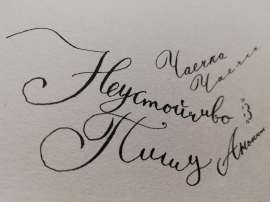 Чаечка
Чаечка
Неустойчиво :3
Пишу